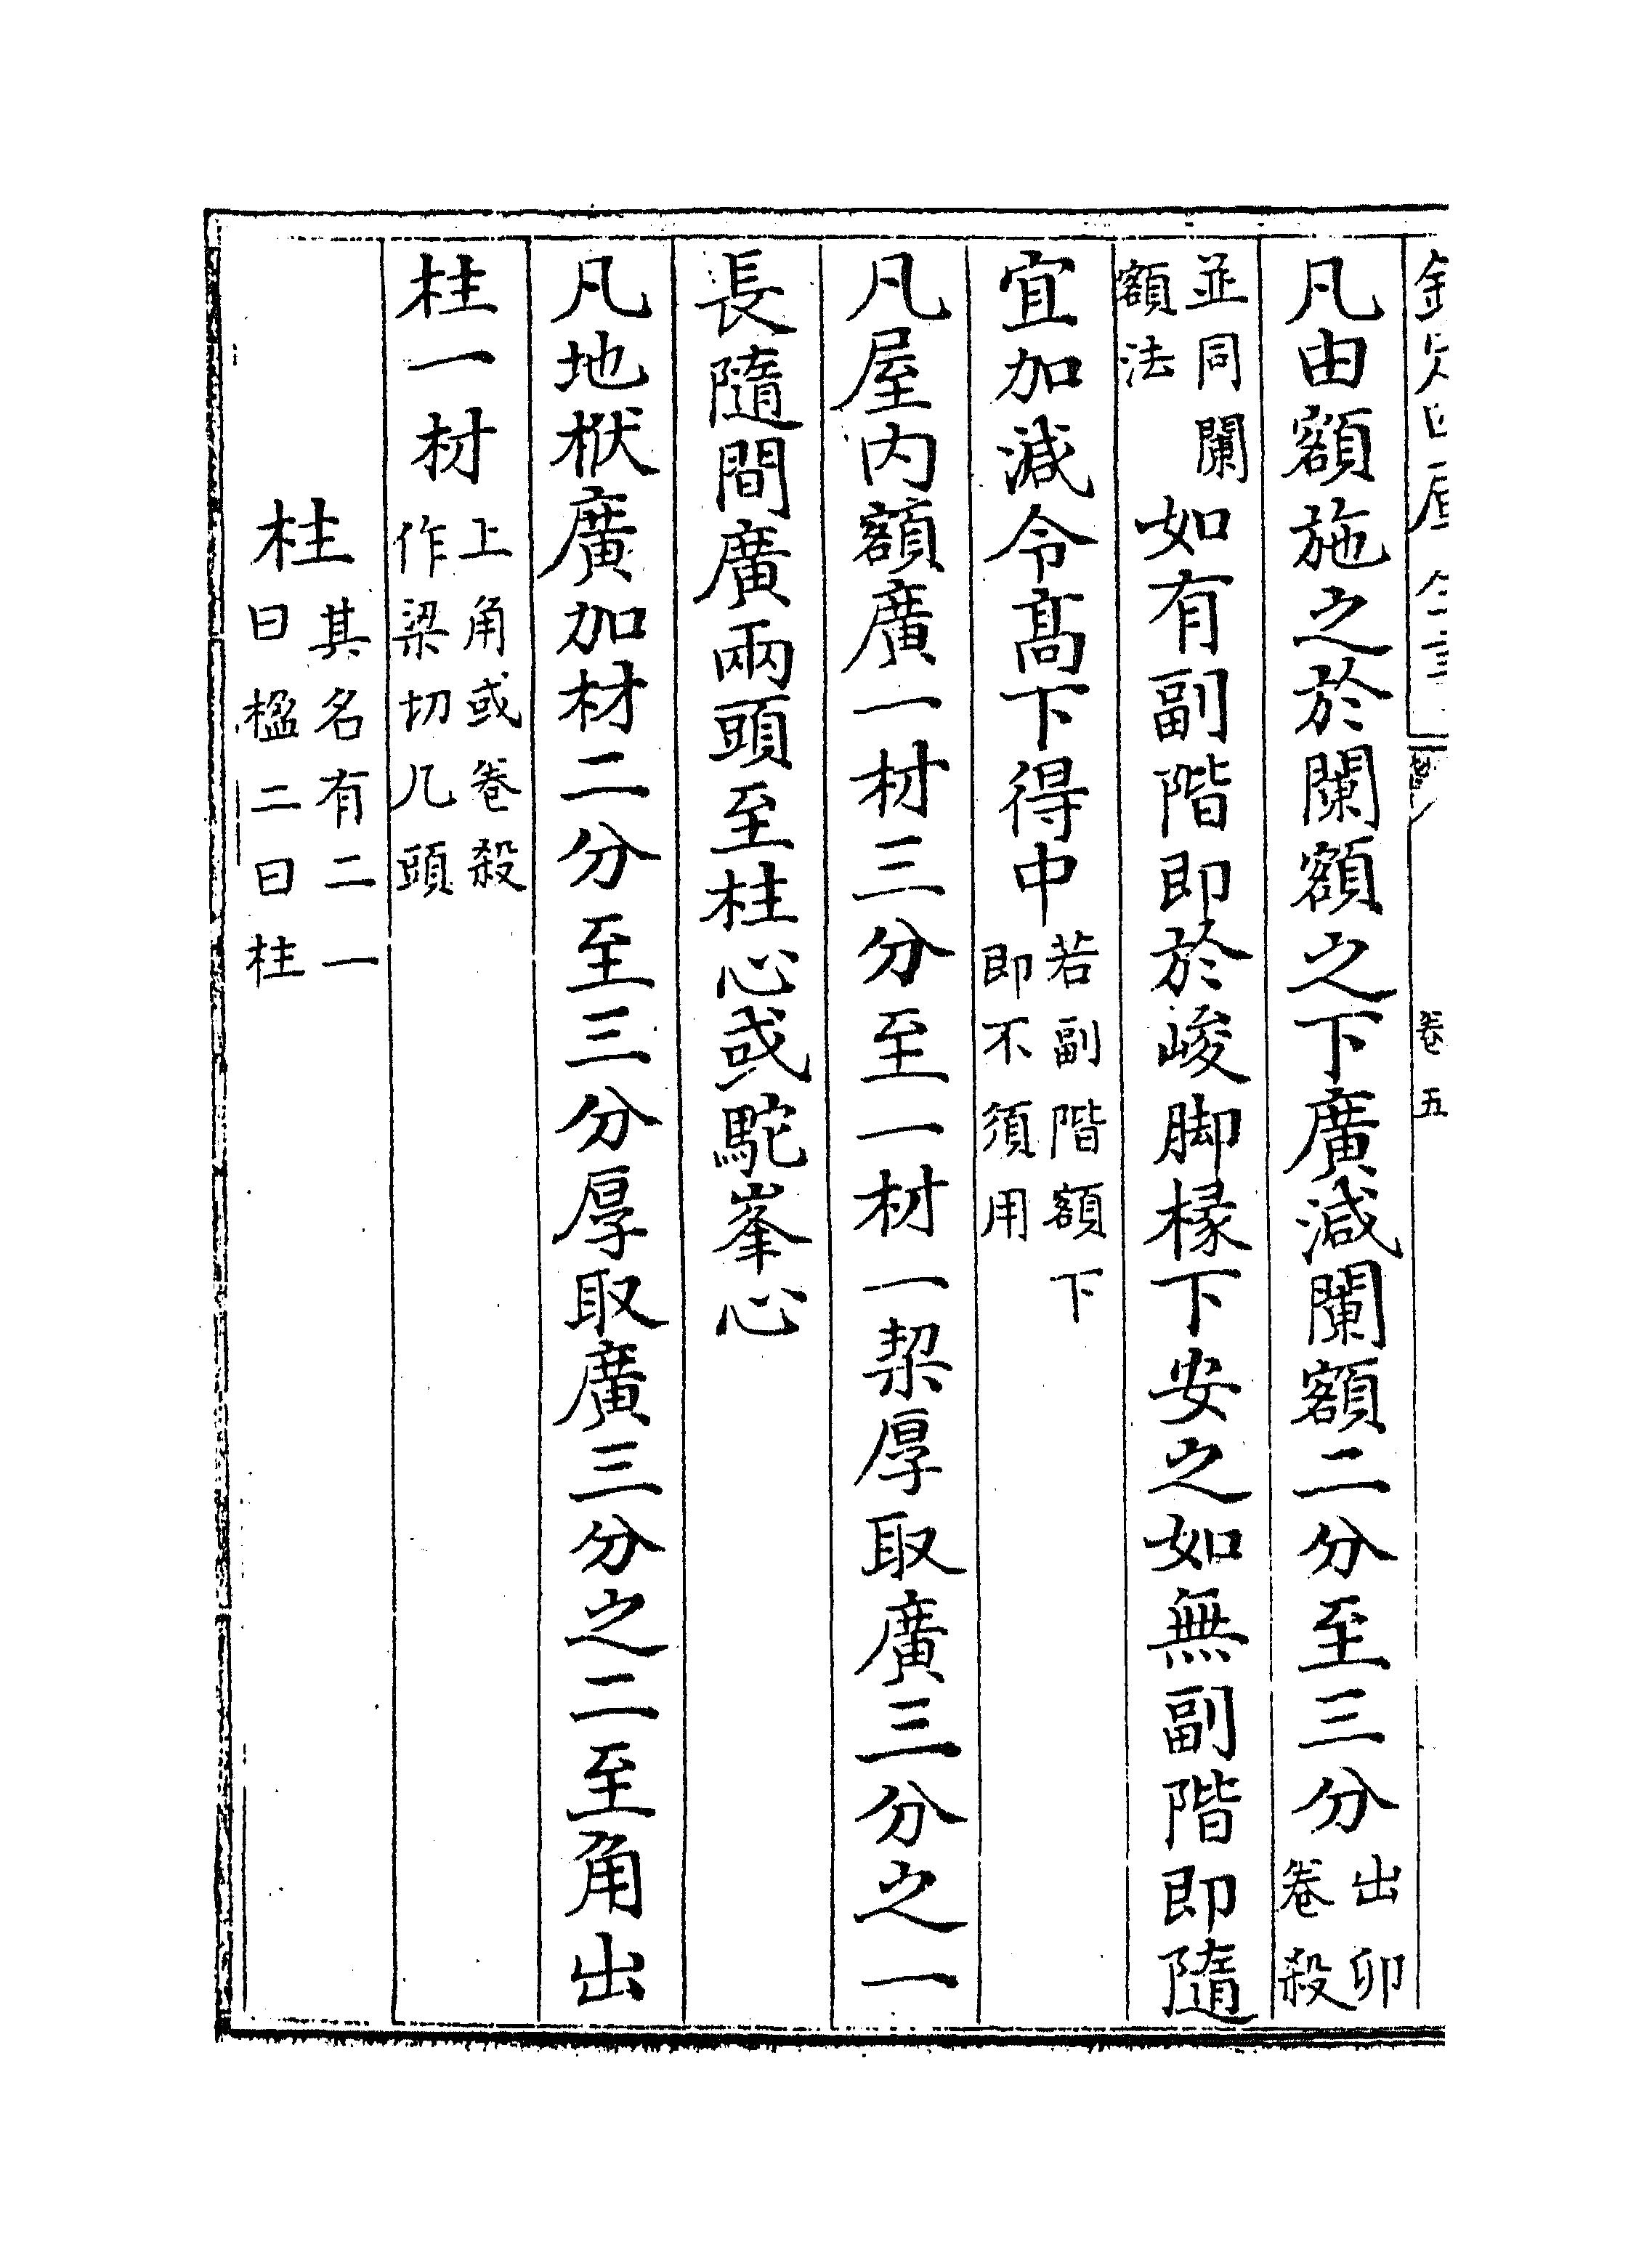 凡由額施之於闌額之下廣減闌額二分至三分出卯卷殺
並同闌額法如有副階即於峻脚椽下安之如無副階即隨
宜加減令髙下得中若副階額下即不須用
凡屋内額廣一材三分至一材一栔厚取廣三分之一
長隨間廣兩頭至柱心或駝峯心
凡地栿廣加材二分至三分厚取廣三分之二至角出
柱一材上角或卷殺作梁切几頭
柱其名有二一曰楹二曰柱
卷五